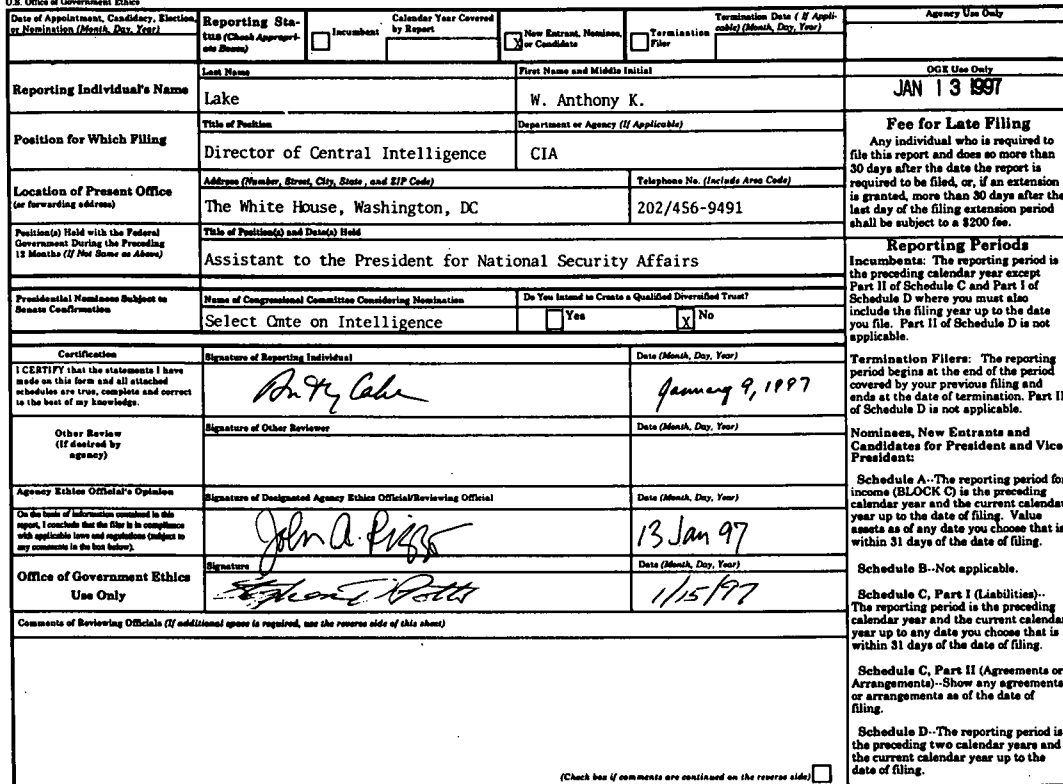 U.S. Office of Government Ethics
Date of Appointment, Candidacy, Election, or Nomination (Month, Day, Year)
Reporting Status (Check Appropriate Boxes)
Incumbent
Calendar Year Covered by Report
X New Entrant, Nominee, or Candidate
Termination Filer
Termination Date (If Applicable) (Month, Day, Year)
Agency Use Only
Reporting Individual's Name
Last Name
Lake
First Name and Middle Initial
W. Anthony K.
OGE Use Only
JAN 13 1997
Position for Which Filing
Title of Position
Director of Central Intelligence
Department or Agency (If Applicable)
CIA
Location of Present Office
(or forwarding address)
Address (Number, Street, City, State, and ZIP Code)
The White House, Washington, DC
Telephone No. (Include Area Code)
202/456-9491
Position(s) Held with the Federal
Government During the Preceding
12 Months (If Not Same as Above)
Title of Position(s) and Date(s) Held
Assistant to the President for National Security Affairs
Presidential Nominees Subject to
Senate Confirmation
Name of Congressional Committee Considering Nomination
Select Cmte on Intelligence
Do You Intend to Create a Qualified Diversified Trust?
Yes
X No
Certification
I CERTIFY that the statements I have
made on this form and all attached
schedules are true, complete and correct
to the best of my knowledge.
Signature of Reporting Individual
Date (Month, Day, Year)
January 9, 1997
Other Review
(If desired by
agency)
Signature of Other Reviewer
Date (Month, Day, Year)
Agency Ethics Official's Opinion
On the basis of information contained in this
report, I conclude that the filer is in compliance
with applicable laws and regulations (subject to
any comments in the box below).
Signature of Designated Agency Ethics Official/Reviewing Official
John A. Rizzo
Date (Month, Day, Year)
13 Jan 97
Office of Government Ethics
Use Only
Signature
Stephen D Potts
Date (Month, Day, Year)
1/15/97
Comments of Reviewing Officials (If additional space is required, use the reverse side of this sheet)
(Check box if comments are continued on the reverse side)
Fee for Late Filing
Any individual who is required to
file this report and does so more than
30 days after the date the report is
required to be filed, or, if an extension
is granted, more than 30 days after the
last day of the filing extension period
shall be subject to a $200 fee.
Reporting Periods
Incumbents: The reporting period is
the preceding calendar year except
Part II of Schedule C and Part I of
Schedule D where you must also
include the filing year up to the date
you file. Part II of Schedule D is not
applicable.
Termination Filers: The reporting
period begins at the end of the period
covered by your previous filing and
ends at the date of termination. Part II
of Schedule D is not applicable.
Nominees, New Entrants and
Candidates for President and Vice
President:
Schedule A--The reporting period for
income (BLOCK C) is the preceding
calendar year and the current calendar
year up to the date of filing. Value
assets as of any date you choose that is
within 31 days of the date of filing.
Schedule B--Not applicable.
Schedule C, Part I (Liabilities)--
The reporting period is the preceding
calendar year and the current calendar
year up to any date you choose that is
within 31 days of the date of filing.
Schedule C, Part II (Agreements or
Arrangements)--Show any agreements
or arrangements as of the date of
filing.
Schedule D--The reporting period is
the preceding two calendar years and
the current calendar year up to the
date of filing.